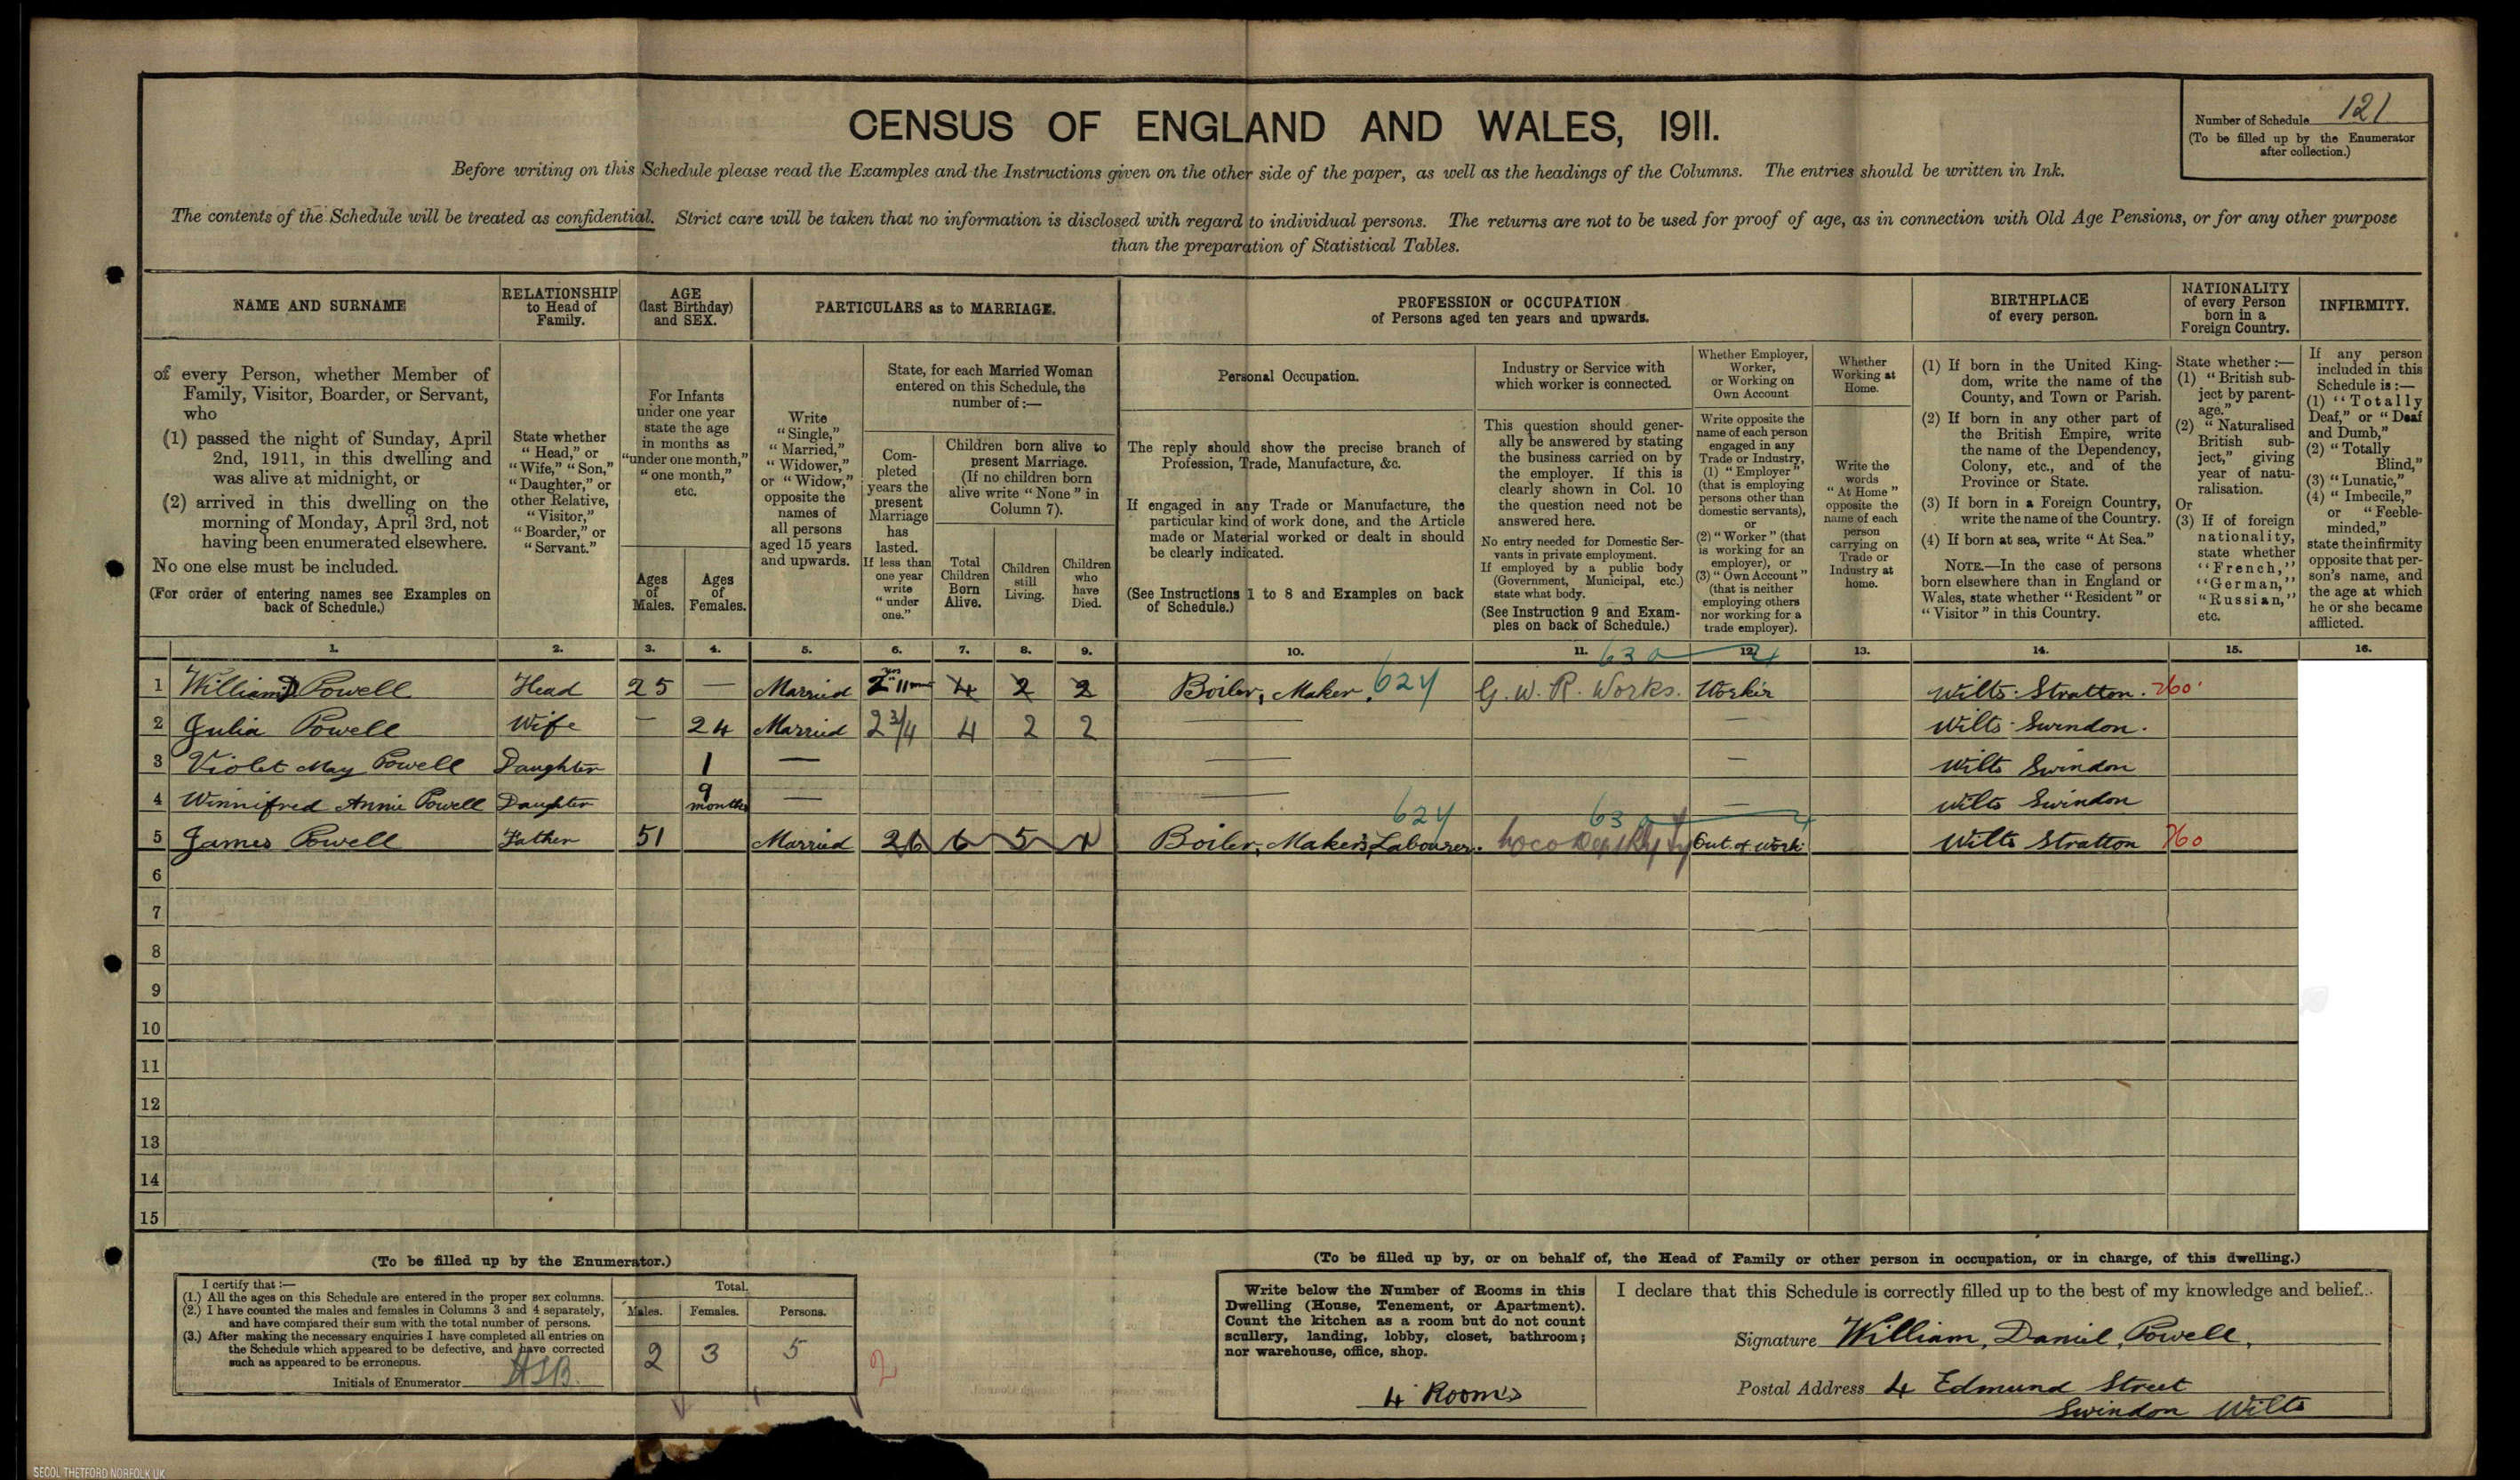 Number of Schedule 121
(To be filled up by the Enumerator
after collection.)
CENSUS OF ENGLAND AND WALES, 1911.
Before writing on this Schedule please read the Examples and the Instructions given on the other side of the paper, as well as the headings of the Columns. The entries should be written in Ink.
The contents of the Schedule will be treated as confidential. Strict care will be taken that no information is disclosed with regard to individual persons. The returns are not to be used for proof of age, as in connection with Old Age Pensions, or for any other purpose
than the preparation of Statistical Tables.
NAME AND SURNAME
of every Person, whether Member of
Family, Visitor, Boarder, or Servant,
who
(1) passed the night of Sunday, April
2nd, 1911, in this dwelling and
was alive at midnight, or
(2) arrived in this dwelling on the
morning of Monday, April 3rd, not
having been enumerated elsewhere.
No one else must be included.
(For order of entering names see Examples on
back of Schedule.)
RELATIONSHIP
to Head of
Family.
State whether
"Head," or
"Wife," "Son,"
"Daughter," or
other Relative,
"Visitor,"
"Boarder," or
"Servant."
AGE
(last Birthday)
and SEX.
For Infants
under one year
state the age
in months as
"under one month,"
"one month,"
etc.
Ages
of
Males.
Ages
of
Females.
PARTICULARS as to MARRIAGE.
Write
"Single,"
"Married,"
"Widower,"
or "Widow,"
opposite the
names of
all persons
aged 15 years
and upwards.
State, for each Married Woman
entered on this Schedule, the
number of:—
Com-
pleted
years the
present
Marriage
has
lasted.
If less than
one year
write
"under
one."
Children born alive to
present Marriage.
(If no children born
alive write "None" in
Column 7).
Total
Children
Born
Alive.
Children
still
Living.
Children
who
have
Died.
PROFESSION or OCCUPATION
of Persons aged ten years and upwards.
Personal Occupation.
The reply should show the precise branch of
Profession, Trade, Manufacture, &c.
If engaged in any Trade or Manufacture, the
particular kind of work done, and the Article
made or Material worked or dealt in should
be clearly indicated.
(See Instructions 1 to 8 and Examples on back
of Schedule.)
Industry or Service with
which worker is connected.
This question should gener-
ally be answered by stating
the business carried on by
the employer. If this is
clearly shown in Col. 10
the question need not be
answered here.
No entry needed for Domestic Ser-
vants in private employment.
If employed by a public body
(Government, Municipal, etc.)
state what body.
(See Instruction 9 and Exam-
ples on back of Schedule.)
Whether Employer,
Worker,
or Working on
Own Account
Write opposite the
name of each person
engaged in any
Trade or Industry,
(1) "Employer"
(that is employing
persons other than
domestic servants),
or
(2) "Worker" (that
is working for an
employer), or
(3) "Own Account"
(that is neither
employing others
nor working for a
trade employer).
Whether
Working at
Home.
Write the
words
"At Home"
opposite the
name of each
person
carrying on
Trade or
Industry at
home.
BIRTHPLACE
of every person.
(1) If born in the United King-
dom, write the name of the
County, and Town or Parish.
(2) If born in any other part of
the British Empire, write
the name of the Dependency,
Colony, etc., and of the
Province or State.
(3) If born in a Foreign Country,
write the name of the Country.
(4) If born at sea, write "At Sea."
NOTE.—In the case of persons
born elsewhere than in England or
Wales, state whether "Resident" or
"Visitor" in this Country.
NATIONALITY
of every Person
born in a
Foreign Country.
State whether:—
(1) "British sub-
ject by parent-
age."
(2) "Naturalised
British sub-
ject," giving
year of natu-
ralisation.
Or
(3) If of foreign
nationality,
state whether
"French,"
"German,"
"Russian,"
etc.
INFIRMITY.
If any person
included in this
Schedule is:—
(1) "Totally
Deaf," or "Deaf
and Dumb,"
(2) "Totally
Blind,"
(3) "Lunatic,"
(4) "Imbecile,"
or "Feeble-
minded,"
state the infirmity
opposite that per-
son's name, and
the age at which
he or she became
afflicted.
1. 2. 3. 4. 5. 6. 7. 8. 9. 10. 11. 12. 13. 14. 15. 16.
630 4
1 William D Powell Head 25 — Married 2 yrs 11 4 2 2 Boiler, Maker. 624 G. W. R. Works. Worker Wilts. Stratton. 760
2 Julia Powell Wife — 24 Married 2 3/4 4 2 2 — — Wilts Swindon.
3 Violet May Powell Daughter 1 — — — Wilts Swindon
4 Winnifred Annie Powell Daughter 9 months — — — Wilts Swindon
624 630 4
5 James Powell Father 51 Married 26 6 5 1 Boiler, Maker's Labourer. Loco Out of work Wilts Stratton 760
6
7
8
9
10
11
12
13
14
15
(To be filled up by the Enumerator.)
I certify that:—
(1.) All the ages on this Schedule are entered in the proper sex columns.
(2.) I have counted the males and females in Columns 3 and 4 separately,
and have compared their sum with the total number of persons.
(3.) After making the necessary enquiries I have completed all entries on
the Schedule which appeared to be defective, and have corrected
such as appeared to be erroneous.
Initials of Enumerator
Total.
Males. Females. Persons.
2 3 5
2
(To be filled up by, or on behalf of, the Head of Family or other person in occupation, or in charge, of this dwelling.)
Write below the Number of Rooms in this
Dwelling (House, Tenement, or Apartment).
Count the kitchen as a room but do not count
scullery, landing, lobby, closet, bathroom;
nor warehouse, office, shop.
4 Rooms
I declare that this Schedule is correctly filled up to the best of my knowledge and belief.
Signature William, Daniel, Powell,
Postal Address 4 Edmund Street
Swindon Wilts
SECOL THETFORD NORFOLK UK